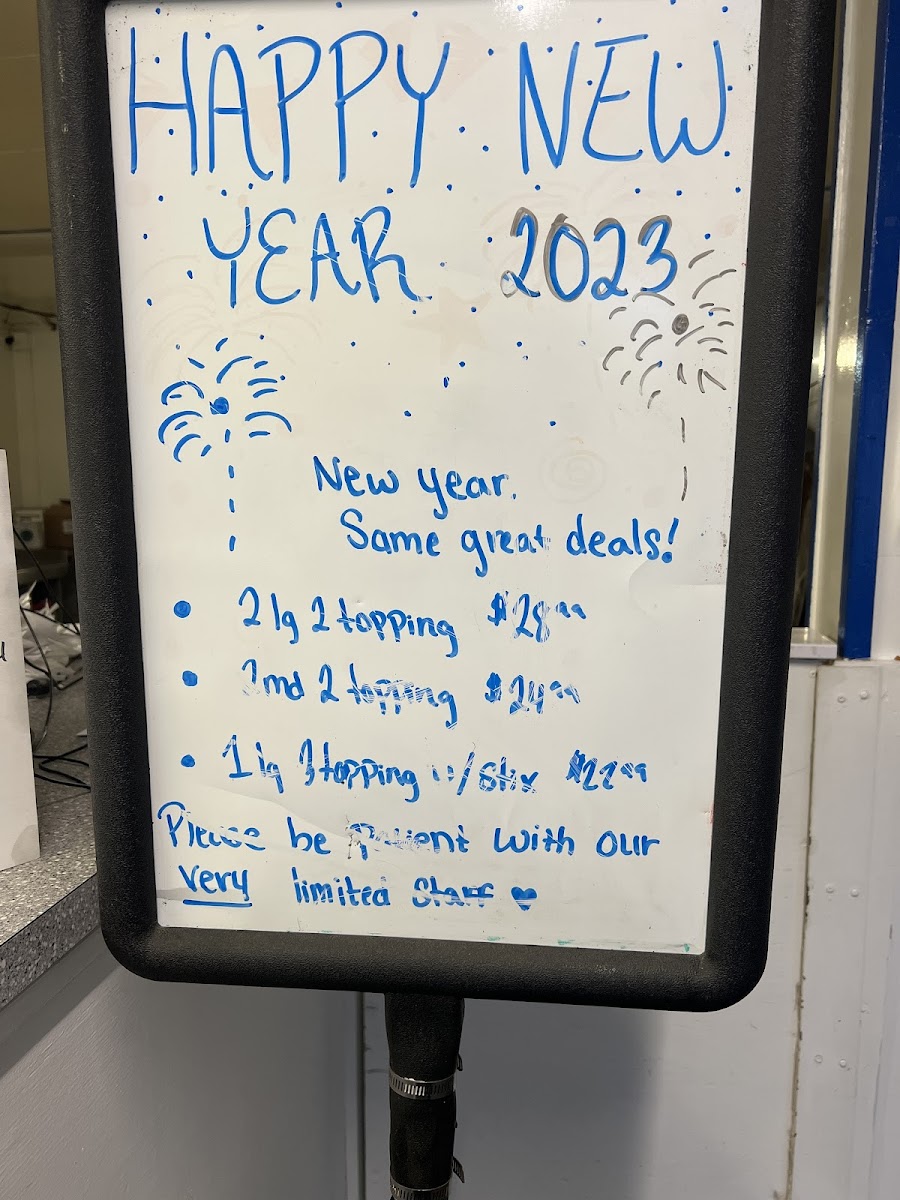 HAPPY NEW
YEAR 2023
New year.
Same great deals!
• 2 lg 2 topping $28.99
• 2md 2 topping $24.99
• 1 lg 3 topping w/stix $22.99
Please be patient with our
very limited staff ♥